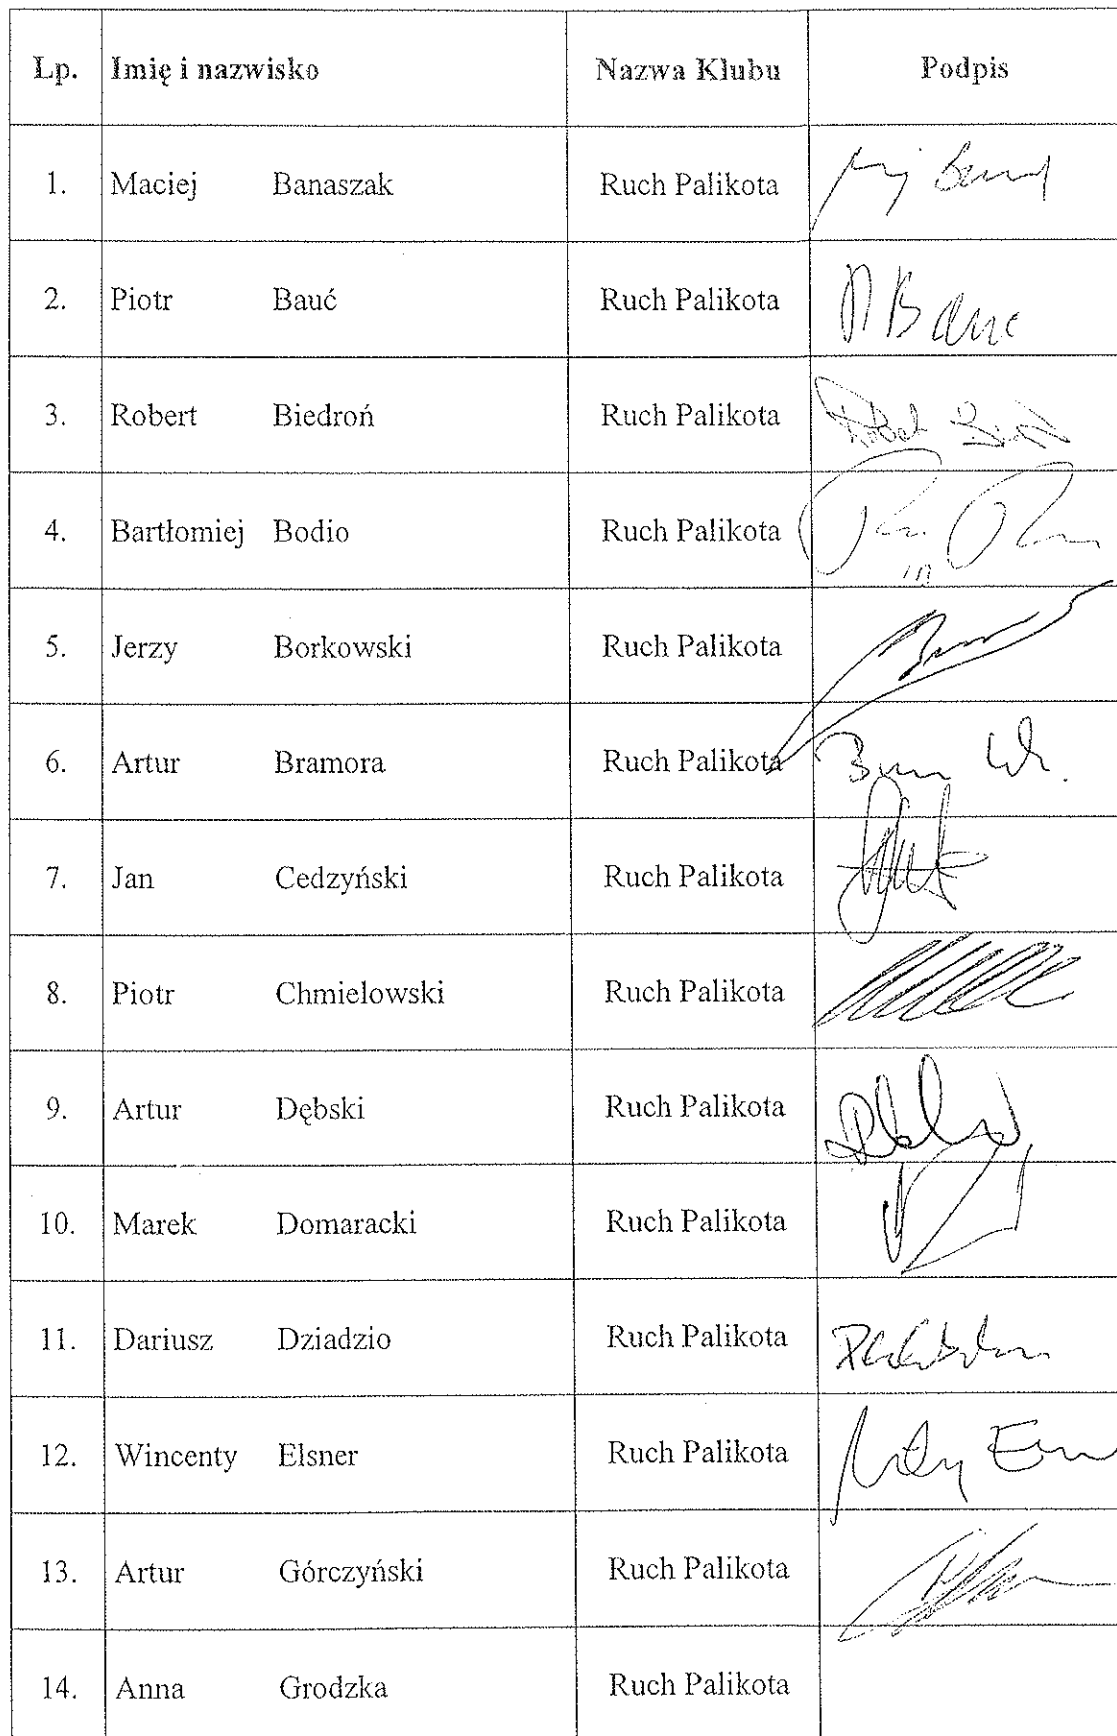 Lp. Imię i nazwisko Nazwa Klubu Podpis
1. Maciej Banaszak Ruch Palikota
2. Piotr Bauć Ruch Palikota
3. Robert Biedroń Ruch Palikota
4. Bartłomiej Bodio Ruch Palikota
5. Jerzy Borkowski Ruch Palikota
6. Artur Bramora Ruch Palikota
7. Jan Cedzyński Ruch Palikota
8. Piotr Chmielowski Ruch Palikota
9. Artur Dębski Ruch Palikota
10. Marek Domaracki Ruch Palikota
11. Dariusz Dziadzio Ruch Palikota
12. Wincenty Elsner Ruch Palikota
13. Artur Górczyński Ruch Palikota
14. Anna Grodzka Ruch Palikota